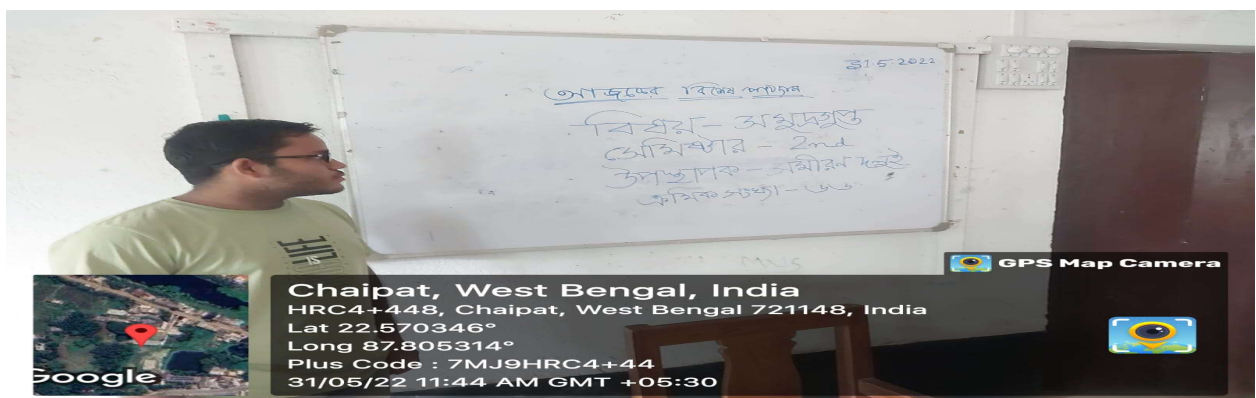 31.5.2022
আজকের বিশেষ পাঠদান
বিষয় - সমুদ্রগুপ্ত
সেমিষ্টার - 2nd
উপস্থাপক - সমীরণ দলুই
ক্রমিক সংখ্যা -
LIFE
IS
GPS Map Camera
Google
Chaipat, West Bengal, India
HRC4+448, Chaipat, West Bengal 721148, India
Lat 22.570346°
Long 87.805314°
Plus Code : 7MJ9HRC4+44
31/05/22 11:44 AM GMT +05:30